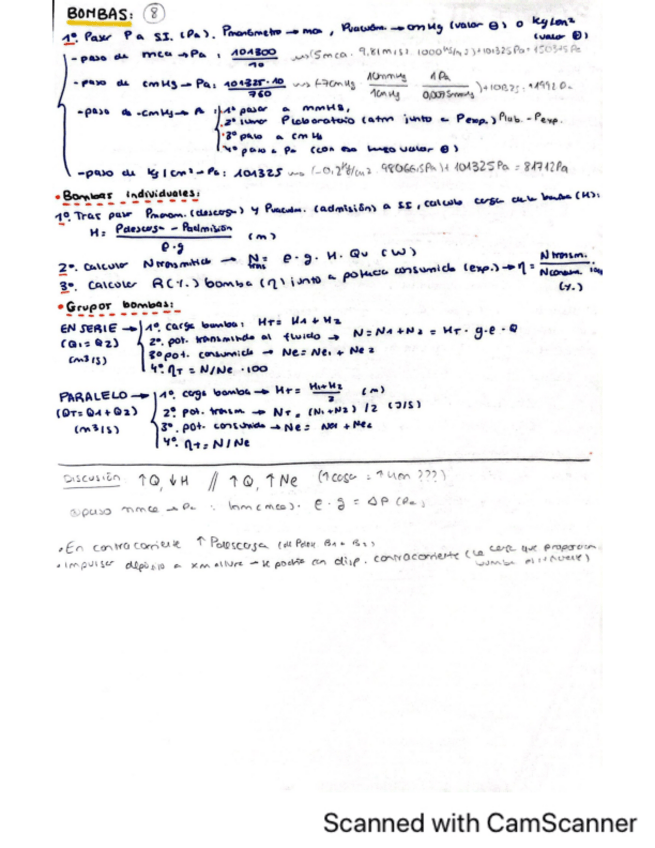 BOMBAS: 8
1º. Pasar P a SI. (Pa). Pmanómetro → mca, Pvacuóm. → cmHg (valor ⊖) o Kg/cm² (valor ⊖)
- paso de mca → Pa : 101300 / 10 (5mca. 9,81m/s². 1000 )+101325Pa =
- paso de cmHg → Pa: 101325·10 / 760 10mmHg / 1cmHg 1Pa / 0,0075mmHg
- paso de -cmHg → 1º pasar a mmHg,
2º sumar Plaboratorio (atm junto a Pexp.) Plab. - Pexp.
3º paso a cmHg
4º paso a Pa (con ese nuevo valor ⊖)
- paso de kg/cm² → Pa: 101325 (-0,2 98066.5Pa)+ 101325Pa = 81712Pa
• Bombas individuales:
1º. Tras pasar Pmanom. (descarga) y Pvacuóm. (admisión) a SI, calculo carga de la bomba (H):
H = Pdescarga - Padmisión / ρ·g (m)
2º. Calcular Ntransmitida → Ntrans = ρ·g·H·Qv (W)
3º. Calcular R(%) bomba (η) junto a potencia consumida (exp.) → η = Ntransm. / Nconsum. 100 (%)
• Grupor bombas:
EN SERIE → 1º. carga bomba: HT = H1 + H2
(Q1 = Q2) 2º. pot. transmitida al fluido → N = N1 + N2 = HT · g·ρ·Q
(m3/s) 3º pot. consumida → Ne = Ne1 + Ne2
4º. ηT = N/Ne ·100
PARALELO → 1º. carga bomba → HT = H1+H2 / 2 (m)
(QT = Q1 + Q2) 2º. pot. transm → NT = (N1+N2) /2 (J/s)
(m3/s) 3º. pot. consumida → Ne = Ne1 + Ne2
4º. ηT = N/Ne
Discusión ↑Q, ↓H // ↑Q, ↑Ne
paso mmca → Pa : · ρ · g = ΔP (Pa)
• En contracorriente ↑ Pdescarga
• Impulsar depósito a altura → se podría con disp. contracorriente
Scanned with CamScanner